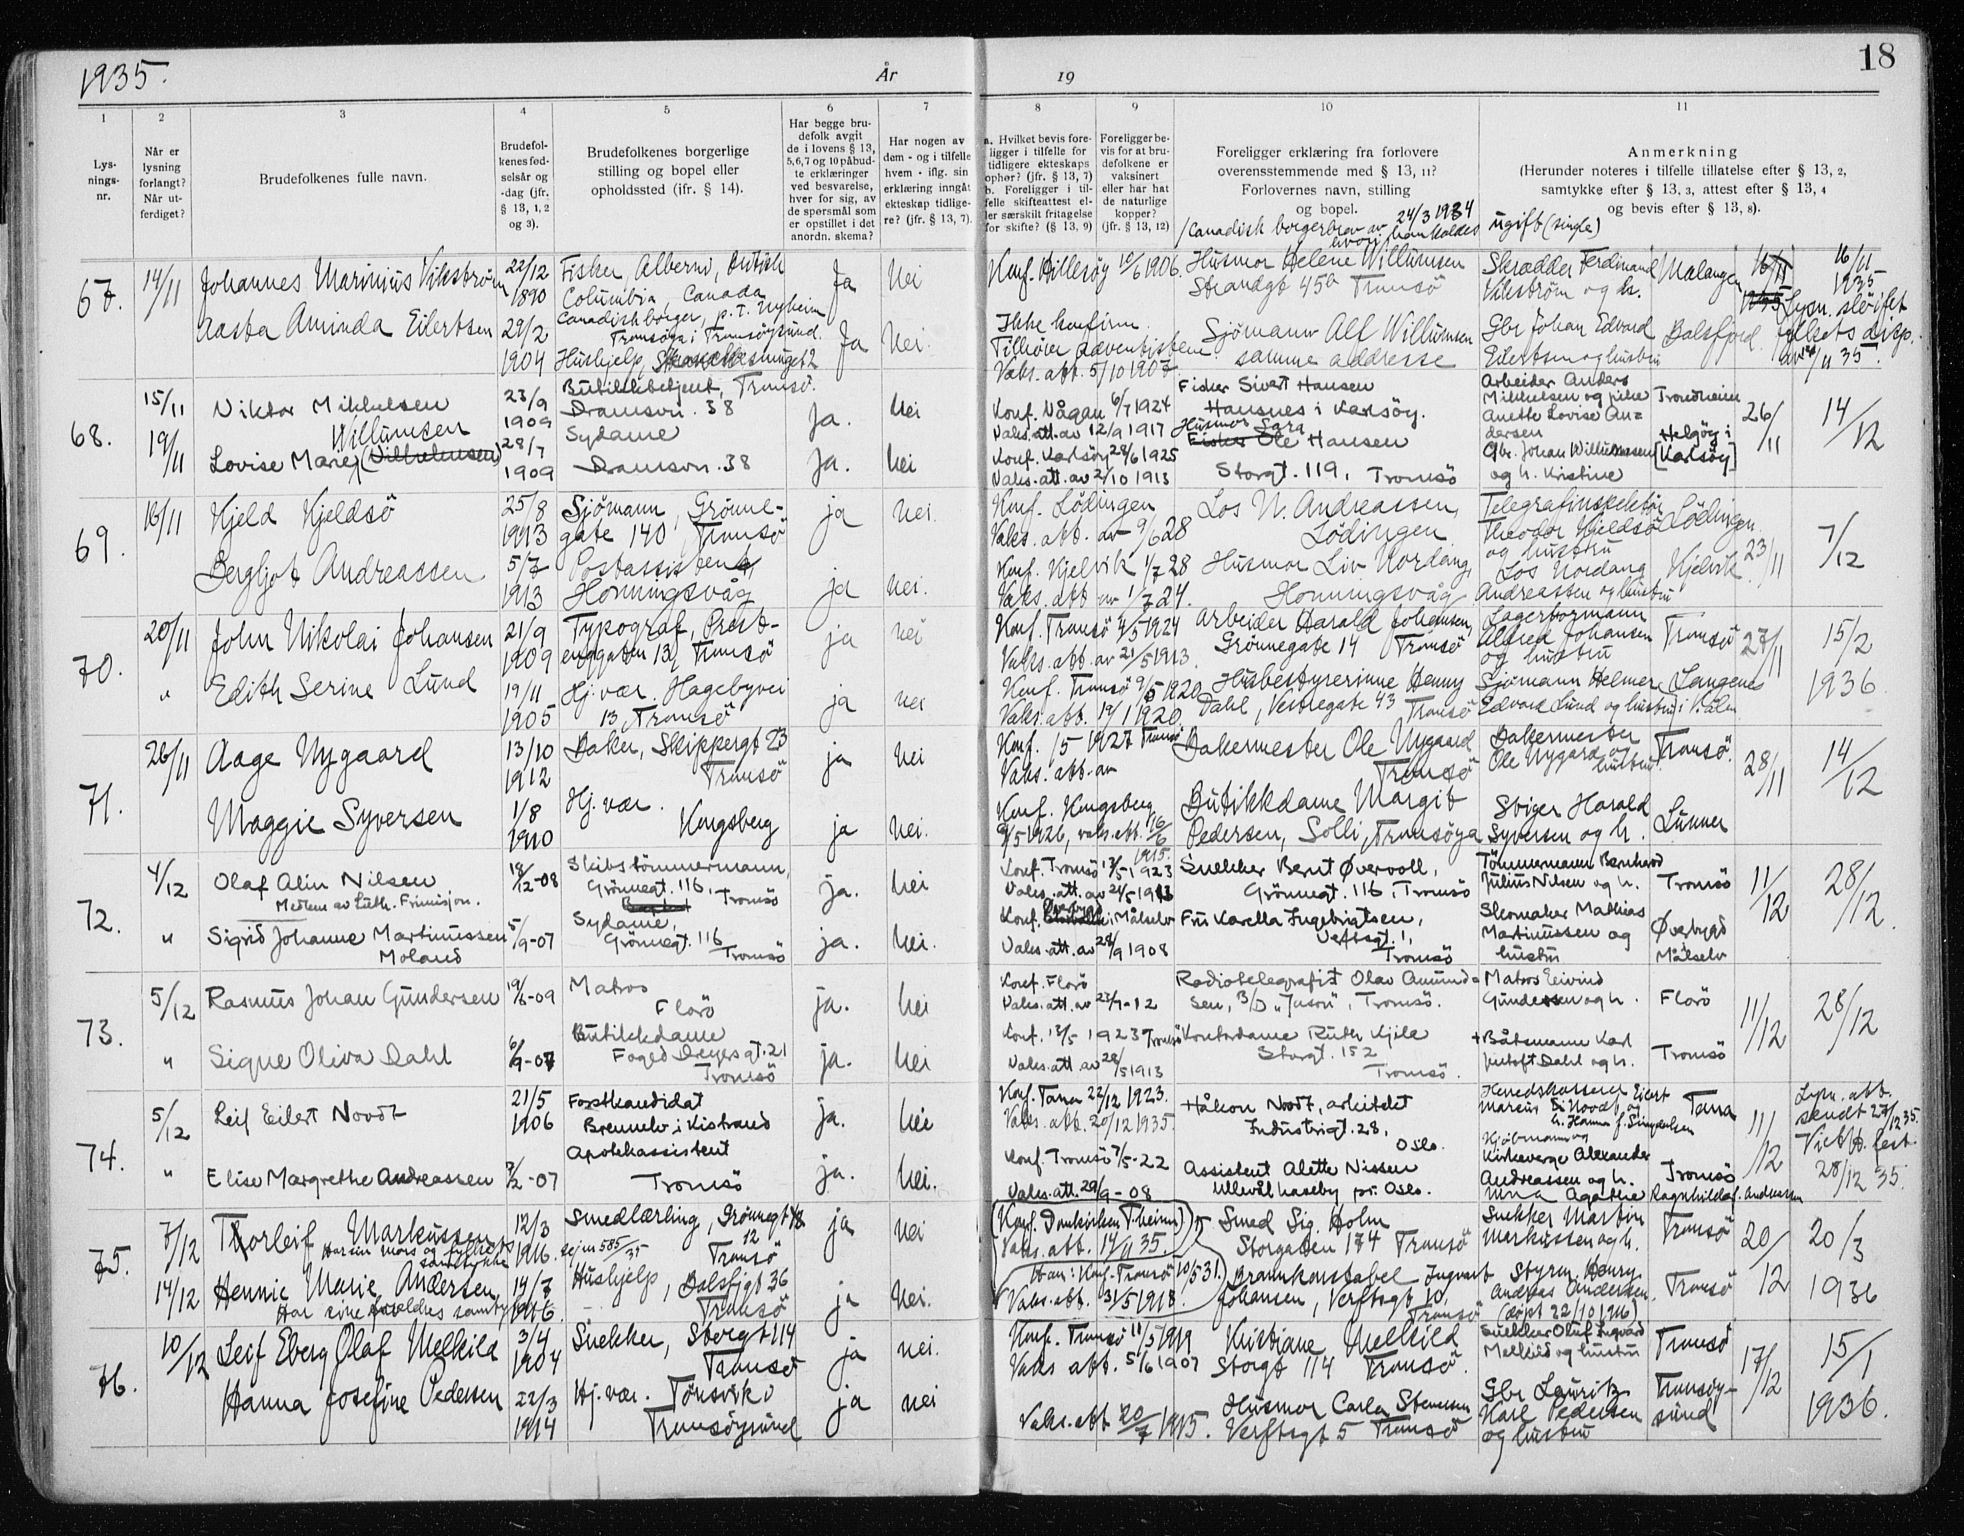 1935.
År
19
18
1
2
3
4
5
6
7
8
9
10
11
Lys-
nings-
nr.
Når er
lysning
forlangt?
Når ut-
ferdiget?
Brudefolkenes fulle navn.
Brudefol-
kenes fød-
selsår og
-dag (jfr.
§ 13, 1, 2
og 3).
Brudefolkenes borgerlige
stilling og bopel eller
opholdssted (ifr. § 14).
Har begge bru-
defolk avgit
de i lovens § 13,
5,6,7 og 10 påbud-
te erklæringer
ved besvarelse,
hver for sig, av
de spørsmål som
er opstillet i det
anordn. skema?
Har nogen av
dem - og i tilfelle
hvem - iflg. sin
erklæring inngått
ekteskap tidlige-
re? (jfr. § 13, 7).
a. Hvilket bevis fore-
ligger i tilfelle for
tidligere ekteskaps
ophør? (jfr. § 13, 7)
b. Foreligger i til-
felle skifteattest el-
ler særskilt fritagelse
for skifte? (§ 13, 9)
Foreligger be-
vis for at bru-
defolkene er
vaksinert
eller har hat
de naturlige
kopper?
(jfr. § 13, 12)
Foreligger erklæring fra forlovere
overensstemmende med § 13, 11?
Forlovernes navn, stilling
og bopel.
Anmerkning
(Herunder noteres i tilfelle tillatelse efter § 13, 2,
samtykke efter § 13, 3, attest efter § 13, 4
og bevis efter § 13, 8).
Canadisk borgerbrev av 24/3 1934
hvori han kaldes ugift (single)
67. 14/11 Johannes Marinius Vikstrøm 22/12 1890
Fisker, Alberni, British
Columbia, Canada
Canadisk borger, p.t. Nyheim
Tromsøya i Tromsøysund.
Ja Nei
Konf. Hillesøy 10/6 1906.
Husmor Helene Willumsen
Strandgt 45b Tromsö
Skrædder Ferdinand
Vikstrøm og h. Malangen
16/11 16/11 1935
Aasta Aminda Eilertsen 29/2 1904
Hushjelp,
Ja Nei.
Ikke konfirm.
Tilhører adventistene
Vaks. att. 5/10 1907.
Sjömann Alf Willumsen
samme addresse
Gbr Johan Edvard
Eilertsen og hustru Balsfjord.
Lysn. slöifet
fylkets disp.
68. 15/11 Viktor Mikkelsen 23/9 1909
Butikkbetjent, Tromsö.
Dramsvn. 38
Ja. Nei
Konf. Vågan 6/7 1924
Vaks. att. av 12/9 1917
Fisker Sivert Hansen
Hansnes i Karlsöy.
Arbeider Anders
Mikkelsen og pike
Anette Lovise An=
dersen
Trondheim
26/11 14/12
19/11 Lovise Marie Willumsen (Vilhelmsen) 28/7 1909
Sydame
Dramsvn. 38
Ja. Nei
Konf. Karlsöy 28/6 1925
Vaks. att. av 2/10 1913
Husmor Sara
Fisker Ole Hansen
Storgt. 119, Tromsö
Gbr. Johan Willumsen
og h. Kristine
Helgöy i
[Karlsöy]
69. 16/11 Kjeld Kjeldsö 25/8 1913
Sjömann, Grönne-
gate 140, Tromsö
ja nei.
Konf. Lödingen
Vaks. att. av 9/6 28
Los N. Andreassen,
Lödingen
Telegrafinspektör
Theodor Kjeldsö
og hustru
Lödingen.
23/11 7/12
Bergljot Andreassen 5/7 1913
Postassistent
Honningsvåg
ja nei.
Konf. Kjelvik 1/7 28
Vaks. att av 1/7 24.
Husmor Liv Nordang,
Honningsvåg
Los Nordang
Andreassen og hustru
Kjelvik
70. 20/11 John Nikolai Johansen 21/9 1909
Typograf, Prest-
enggaten 13, Tromsö
ja nei
Konf. Tromsö 4/5 1924
Vaks. att. av 21/5 1913.
Arbeider Harald Johansen,
Grönnegate 14 Tromsö
Lagerformann
Alfred Johansen
og hustru
Tromsö
27/11 15/2 1936.
" Edith Serine Lund 19/11 1905
Hj. vær. Hagebyvei
13, Tromsö
ja nei
Konf. Tromsö 9/5 1920
Vaks. att. 19/1 1920.
Husbestyrerinne Henny
Dahl, Vestregate 43 Tromsö
Sjömann Helmer
Edvard Lund og hustru
Langenes
71. 26/11 Aage Nygaard 13/10 1912
Baker, Skippergt 23
Tromsö
ja nei
Konf. /5 1927 Tromsö
Vaks. att. av
Bakermester Ole Nygaard
Tromsö
Bakermester
Ole Nygard og hustru.
Tromsö.
28/11 14/12
Maggie Syversen 1/8 1910
Hj. vær.
Kongsberg
ja nei.
Konf. Kongsberg
9/5 1926, vaks. att. 16/6 1915.
Butikkdame Margit
Pedersen, Solli, Tromsöya
Stiger Harald
Syversen og h.
Lunner
72. 4/12 Olaf Alin Nilsen
Medlem av Luth. Frimisjon.
18/12-08
Skibstömmermann,
Grönnegt. 116, Tromsö
ja. Nei
Konf. Tromsö 13/5-1923
Vaks. att. av 24/5-1913
Snekker Bernt Øvervoll,
Grönnegt. 116, Tromsö
Tömmermann Bernhard
Julius Nilsen og h.
Tromsö
11/12 28/12.
" Sigrid Johanne Martinussen
Moland
5/9-07
Sydame,
Grönnegt. 116
Tromsö
ja. Nei.
Konf. Øverbygd i Målselv
Vaks. att. av 28/9 1908
Fru Karella Ingebrigtsen,
Verftsgt. 1,
Tromsö
Skomaker Mathias
Martinussen og
hustru
Øverbygd
Målselv
73. 5/12 Rasmus Johan Gundersen 19/6-09
Matros
Florö
ja. Nei
Konf. Florö
Vaks. att. av 23/9-12
Radiotelegrafist Olav Amund=
sen, Tromsö.
Matros Eivind
Gundersen og h.
Florö
11/12 28/12
" Signe Oliva Dahl 6/9-07
Butikkdame
Foged Dreyers gt. 21
Tromsö
ja. Nei
Konf. 13/5 1923 Tromsö
Vaks. att. av 28/5 1913
Kontordame Ruth Kjile
Storgt. 152
Tromsö.
+ Båtsmann Karl
Dahl og h.
Tromsö
74. 5/12 Leif Eilert Noodt 21/5 1906
Forstkandidat
Brennelv i Kistrand
ja. Nei
Konf. Tana 22/12 1923.
Vaks. att. 20/12 1935.
Håkon Noodt, arkitekt
Industrigt. 28,
Oslo.
Herredskasserer Eilert
Marius Noodt og
Tana
11/12
Lysn. att.
sendt 27/12 35.
" Elise Margrethe Andreassen 3/2-07
Apotekassistent
Tromsö
ja. Nei.
Konf. Tromsö 7/5-22
Vaks. att. 29/9-08
Assistent Alette Nissen
Ullevål haseby pr. Oslo.
Kjöbmann og
Kirkeverge Alexander
Andreassen og h.
Tromsö
28/12 35.
75. 7/12 Thorleif Markussen
12/3 1916.
Smedlærling, Grönnegt
Tromsö
ja nei
(Konf. Domkirken T.heim)
Vaks. att. 14/11 35.
Smed Sig. Holm
Storgaten 174 Tromsö
Snekker Martin
Markussen og h.
Tromsö
20/12 20/3 1936
14/12 Hennie Marie Andersen
Har sine foreldres samtykke
14/7 1916.
Hushjelp, Balsfjgt 36
Tromsö
ja Nei.
Konf. Tromsö 10/5 31.
Vaks. att. 31/5 1918.
Brannkonstabel Ingvart
Johansen, Verftsgt 10,
Tromsö
Styrm. Henry
Andreas Andersen.
(döpt 22/10 1916)
Tromsö
76. 10/12 Leif Eberg Olaf Melkild 3/4 1904
Snekker, Storgt 114
Tromsö
ja nei.
Konf. Tromsö 11/5 1919
Vaks att. 5/6 1907
Kristiane Melkild
Storgt 114 Tromsö.
Snekker Oluf Ingvard
Melkild og hustru
Tromsö
17/12 15/1 1936.
Hanna Josefine Pedersen 22/3 1914
Hj. vær. Tönsvik i
Tromsöysund
ja nei
Vaks. att 20/7 1915.
Husmor Carla Stenersen
Verftsgt 5 Tromsö
Gbr Lauritz
Karl Pedersen
og hustru
Tromsöy-
sund